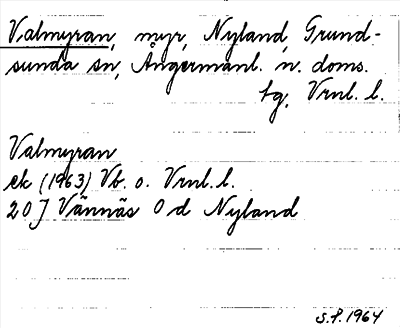 Valmyran, myr, Nyland, Grund-
sunda sn, Ångermanl. n. doms.
tg, Vrnl. l.
Valmyran
ek (1963) Vb. o. Vrnl. l.
20J Vännäs 0 d Nyland
S.P. 1964